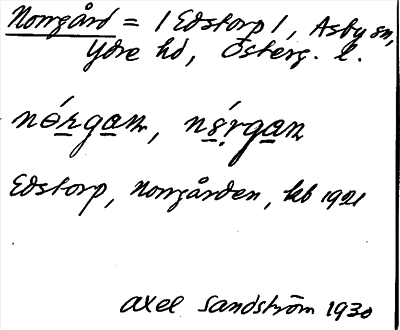 Norrgård = / Edstorp /, Asby sn,
Ydre hd, Österg. l.
Edstorp, Norrgården, kb 1921
Axel Sandström 1930